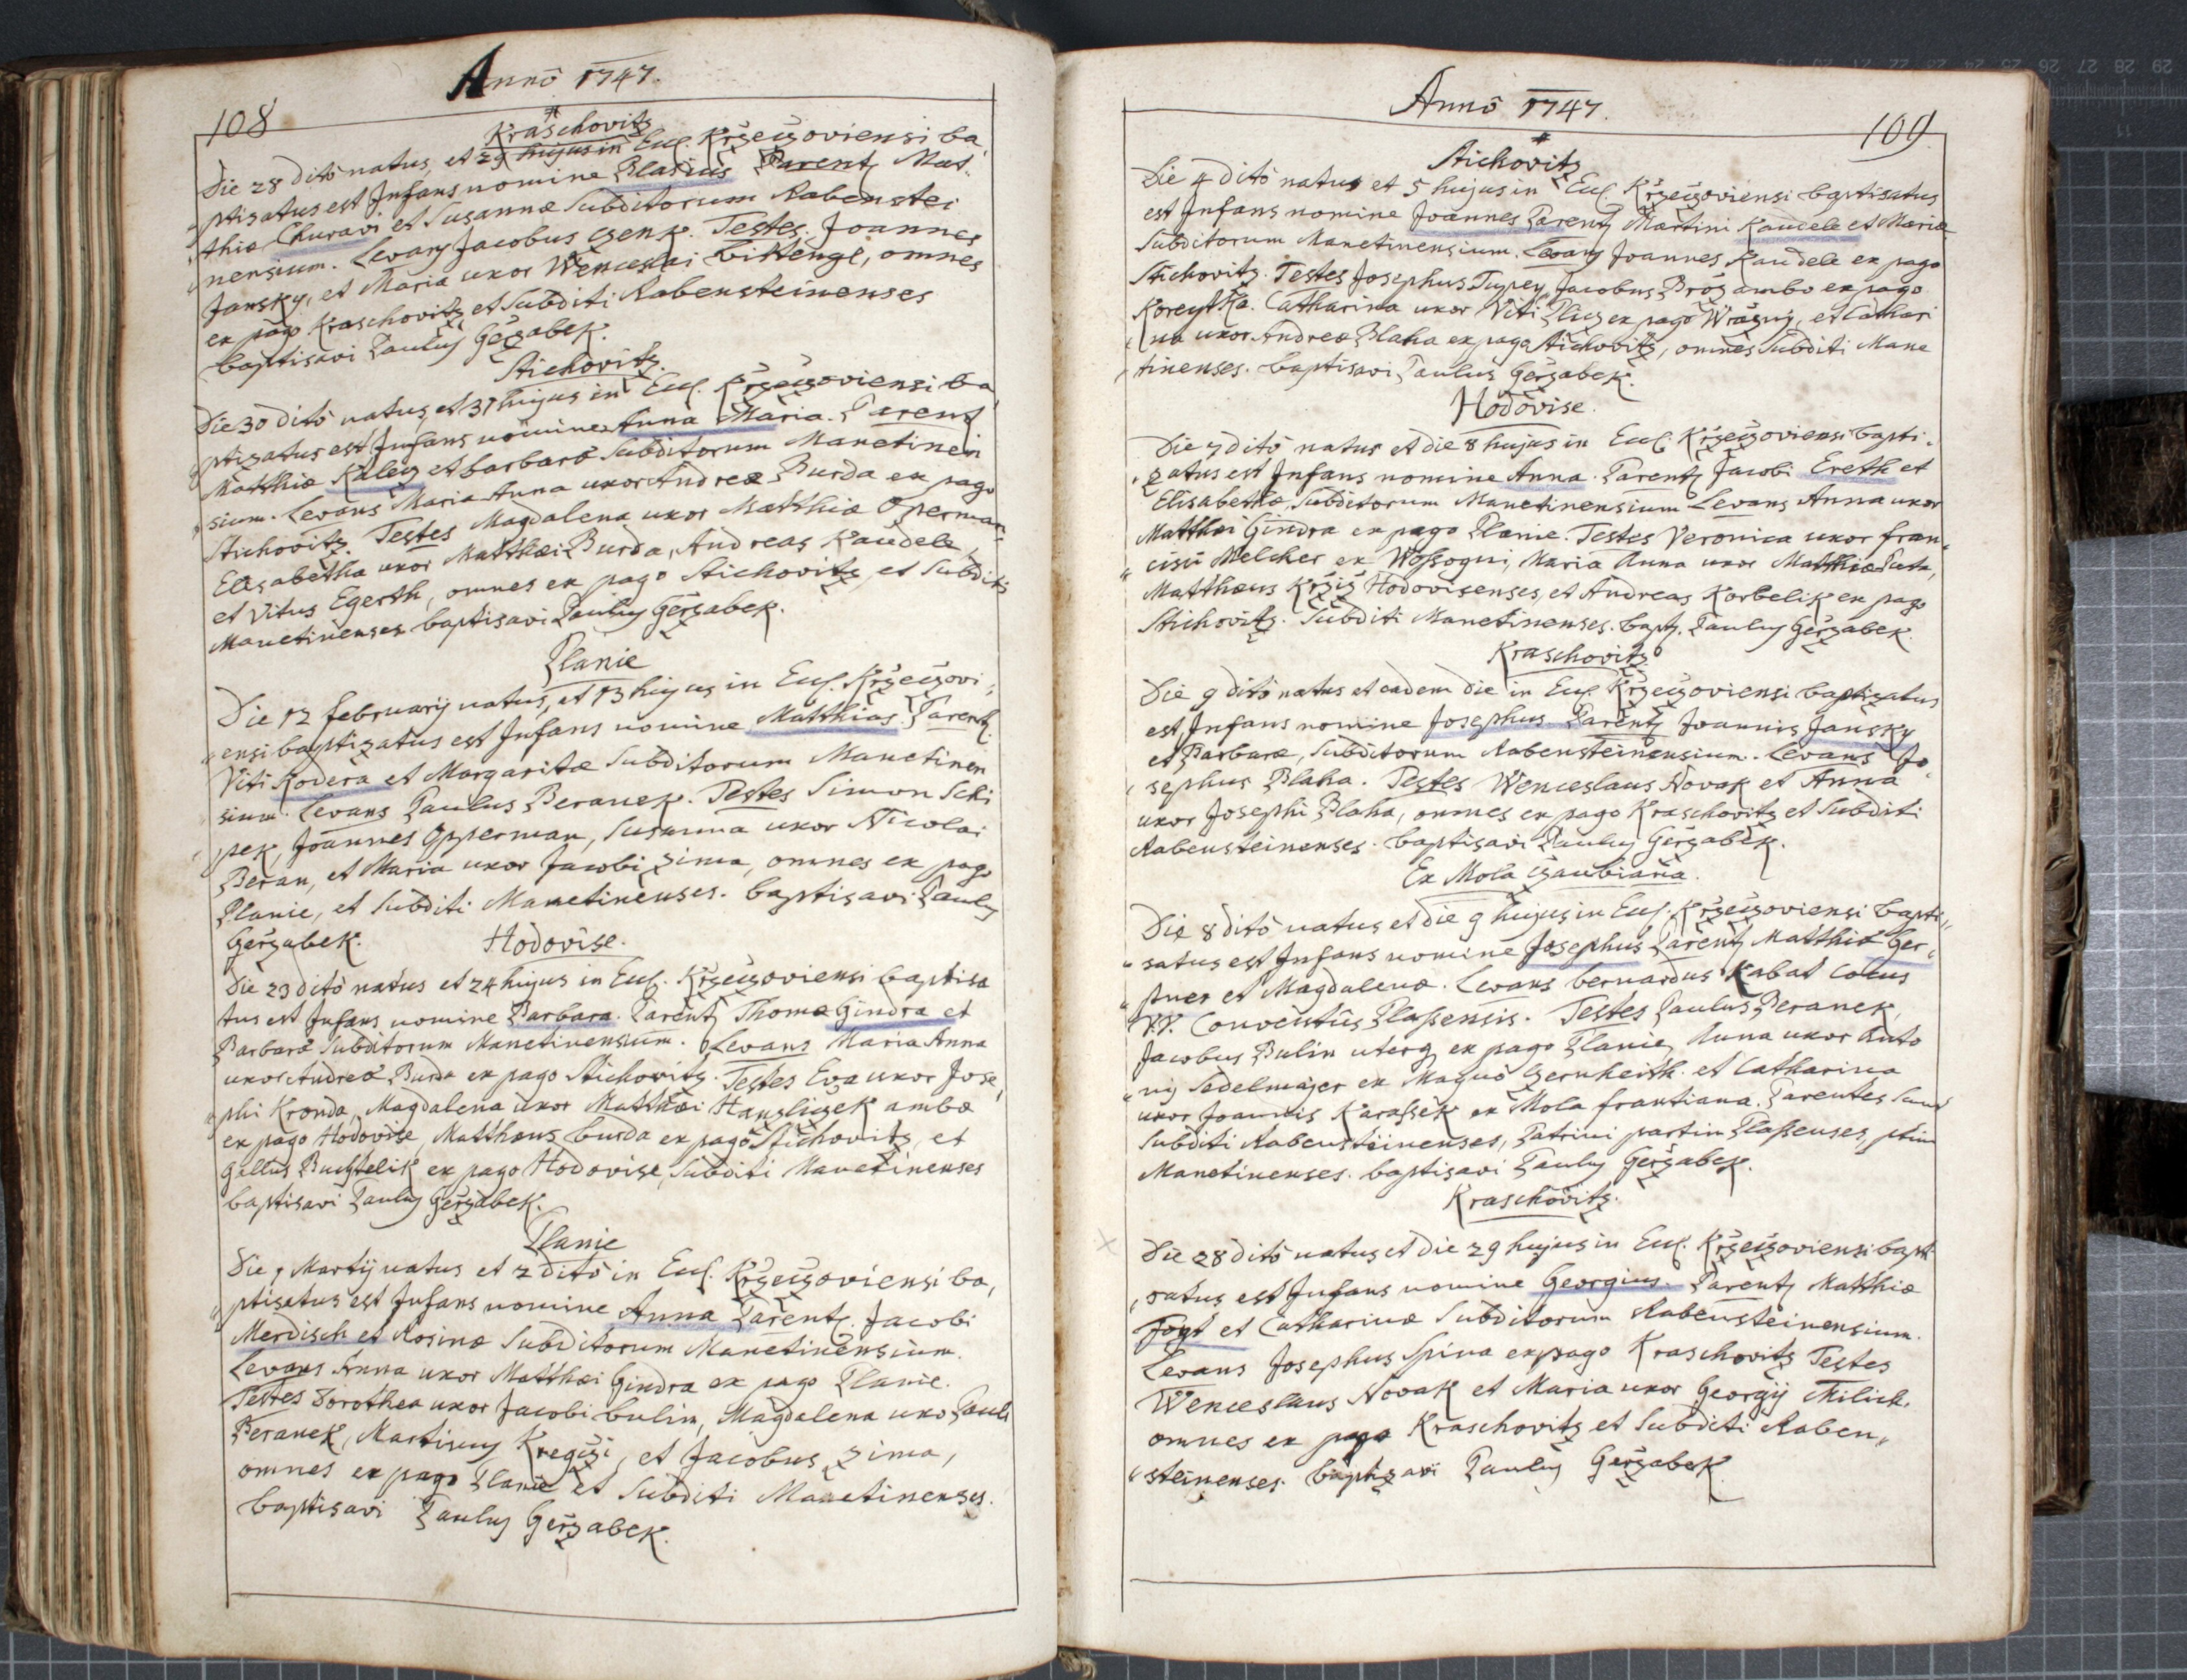 Annô 1747.
108
Kraschovitz
Die 28 ditô natus, et 29 hujus in Eccl. Kržeczoviensi ba,
ptizatus est Infans nomine Blasius Parent. Mat-
thiæ Churavi et Susannæ Subditorum Rabenstei
nensium. Levans Jacobus Czenk. Testes Joannes
Jansky, et Maria uxor Wenceslai Bittengl, omnes
ex pago Kraschovitz et Subditi Rabensteinenses
baptisavi Paulus Geržabek.
Stichovitz.
Die 30 ditô natus, et 31 hujus in Eccl. Kržeczoviensi ba,
ptizatus est Infans nomine Anna Maria. Parent
Matthiæ Kalcz et Barbaræ Subditorum Manetinen
sium. Levans Maria Anna uxor Andreæ Burda ex pago
Stichovitz. Testes Magdalena uxor Matthiæ Operman,
Elisabetha uxor Matthæi Burda, Andreas Kaudele,
et Vitus Egerth, omnes ex pago Stichovitz, et Subditi
Manetinenses baptisavi Paulus Geržabek.
Planie
Die 12 februarij natus, et 13 hujus in Eccl. Kržeczovi,
ensi baptizatus est Infans nomine Matthias. Parent.
Viti Kodera et Margaritæ Subditorum Manetinen
sium. Levans Paulus Beranek. Testes Simon Schi
pek, Joannes Opperman, Susanna uxor Nicolai
Beran, et Maria uxor Jacobi Zima, omnes ex pago
Planie, et Subditi Manetinenses. baptisavi Paulus
Geržabek. Hodovise.
Die 23 ditô natus et 24 hujus in Eccl. Kržeczoviensi baptisa
tus est Infans nomine Barbara. Parent. Thomæ Gindra et
Barbaræ Subditorum Manetinensium. Levans Maria Anna
uxor Andreæ Burda ex pago Stichovitz. Testes Eva uxor Jose,
phi Kronda, Magdalena uxor Matthæi Hanzliczek ambæ
ex pago Hodovise, Matthæus burda ex pago Stichovitz, et
Gallus Buchtelik ex pago Hodovise, Subditi Manetinenses
baptisavi Paulus Geržabek.
Planie
Die 1 Martij natus et 2 ditô in Eccl. Kržeczoviensi ba,
ptisatus est Infans nomine Anna Parent. Jacobi
Merdisch et Rosinæ Subditorum Manetinensium.
Levans Anna uxor Matthæi Gindra ex pago Planie.
Testes Dorothea uxor Jacobi bulin, Magdalena uxo Pauli
Beranek, Martinus Kregczi, et Jacobus Zima,
omnes ex pago Planie et Subditi Manetinenses.
baptisavi Paulus Geržabek.
Annô 1747.
109
Stichovitz
Die 4 ditô natus et 5 hujus in Eccl. Kržeczoviensi baptisatus
est Infans nomine Joannes Parent. Martini Kaudele et Mariæ
Subditorum Manetinensium. Levans Joannes Kaudele ex pago
Stichovitz. Testes Josephus Tupey, Jacobus Broz ambo ex pago
Koreytka. Catharina uxor Viti Plicz ex pago Wrazny, et Cathari
na uxor Andreæ Blaha ex pago Stichovitz, omnes Subditi Mane
tinenses. baptisavi Paulus Geržabek.
Hodovise.
Die 7 ditô natus et die 8 hujus in Eccl. Kržeczoviensi bapti,
zatus est Infans nomine Anna. Parent. Jacobi Ereth et
Elisabethæ, Subditorum Manetinensium Levans Anna uxor
Matthæi Gindra ex pago Planie. Testes Veronica uxor fran,
cisci Melcher ex Wossogni, Maria Anna uxor Matthiæ Puta,
Matthæus Kržiž Hodovisenses, et Andreas Korbelik ex pago
Stichovitz. Subditi Manetinenses. bapt. Paulus Geržabek.
Kraschovitz
Die 9 ditô natus et eadem die in Eccl. Kržeczoviensi baptizatus
est, Infans nomine Josephus Parent. Joannis Jansky
et Barbaræ, Subditorum Rabensteinensium. Levans Jo,
sephus Blaha. Testes Wenceslaus Novak et Anna
uxor Josephi Blaha, omnes ex pago Kraschovitz et Subditi
Rabensteinenses. baptisavi Paulus Geržabek.
Ex Mola Czaubiana.
Die 8 ditô natus et die 9 hujus in Eccl. Kržeczoviensi bapti,
satus est Infans nomine Josephus Parent. Matthiæ Ger,
stner et Magdalenæ. Levans bernardus Kabat Cocus
V.V. Conventûs Plassensis. Testes Paulus Beranek,
Jacobus Bulin uterq. ex pago Planie, Anna uxor Anto
nij Sedelmajer ex Magno Czernheith. et Catharina
uxor Joannis Karassek ex Mola frantiana. Parentes Sunt
Subditi Rabensteinenses, Patrini partim Plassenses, ptim
Manetinenses. baptisavi Paulus Geržabek.
Kraschovitz.
Die 28 ditô natus et die 29 hujus in Eccl. Kržeczoviensi bapti
satus est Infans nomine Georgius. Parent. Matthiæ
Fogt et Catharinæ Subditorum Rabensteinensium.
Levans Josephus Spina ex pago Kraschovitz Testes
Wenceslaus Novak et Maria uxor Georgij Milich.
omnes ex pago Kraschovitz et Subditi Raben,
steinenses. baptizavi Paulus Geržabek